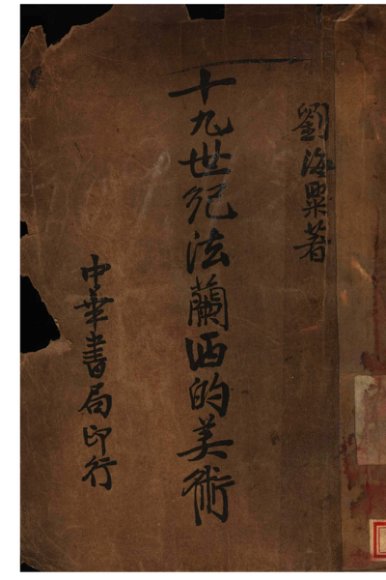 劉海粟著
十九世紀法蘭西的美術
中華書局印行